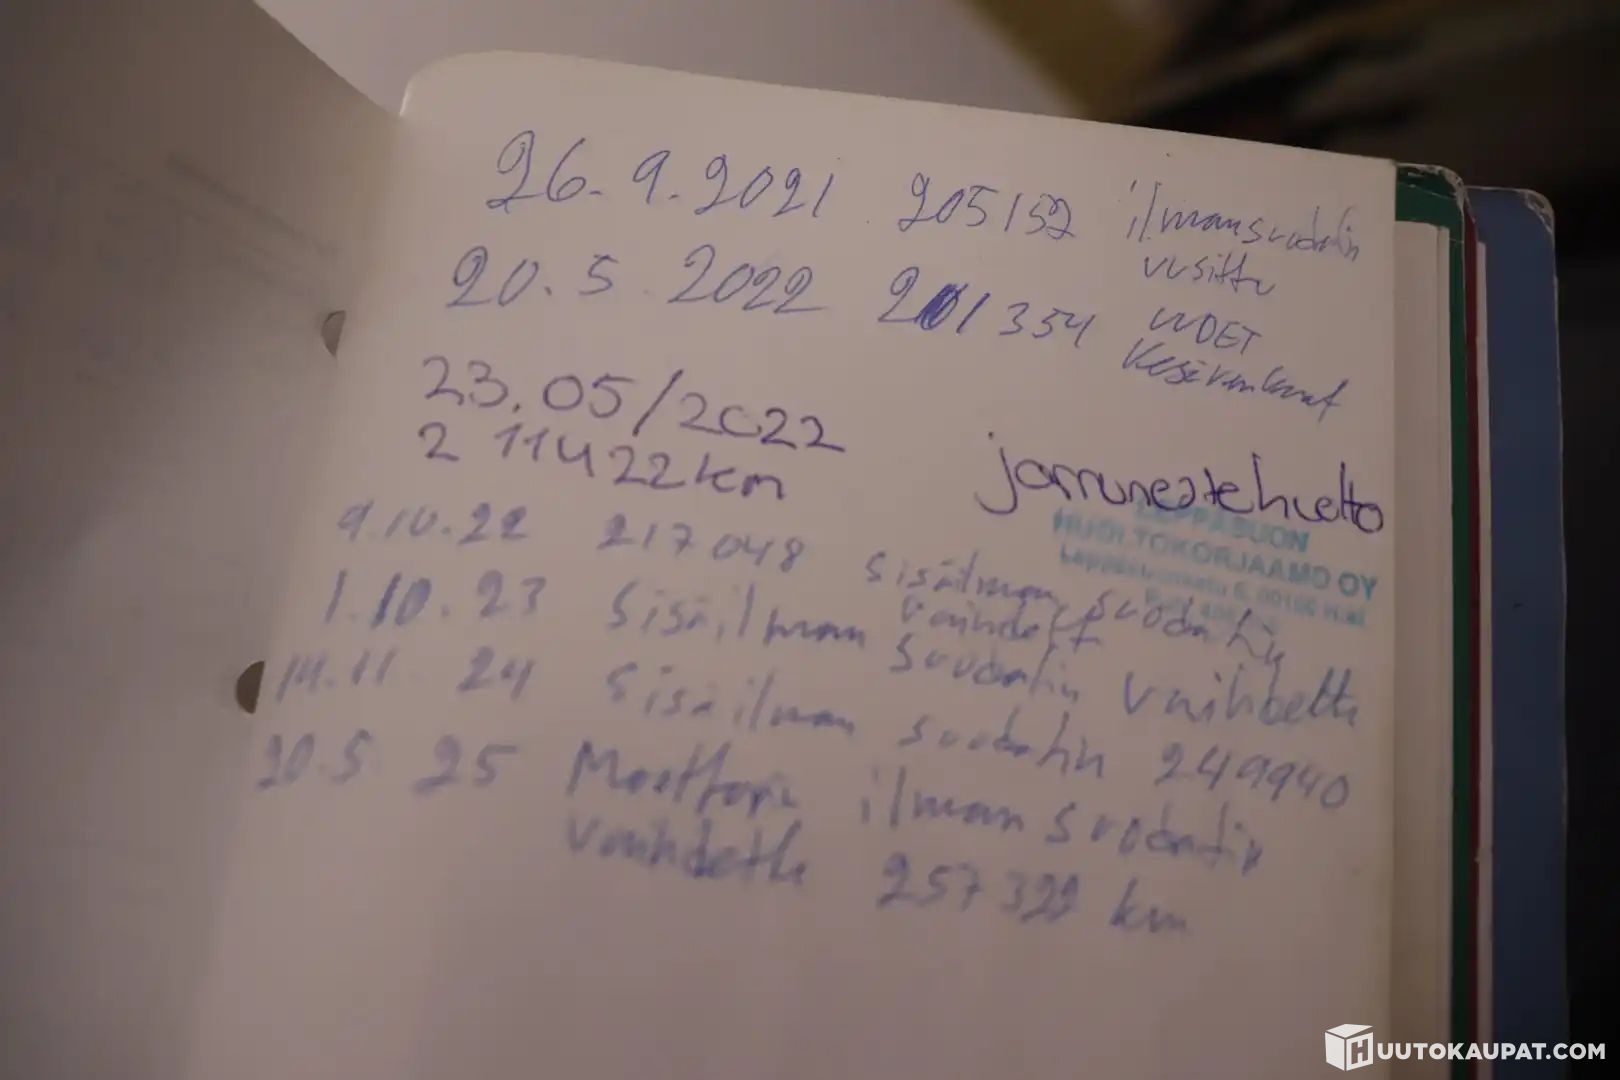 26.9.2021 205152 ilmansuodatin
vusittu
20.5.2022 201354 UUDET
kesärenkaat
23.05/2022
211422km jarrunestehuolto
LEPPÄSUON
HUOLTOKORJAAMO OY
9.10.22 217048 sisäilman suodatin
vaihdett
1.10.23 Sisäilman suodatin vaihdettu
14.11.24 Sisäilman suodatin 249940
20.5 25 Moottorin ilman suodatin
vaihdettu 257322 km
HUUTOKAUPAT.COM